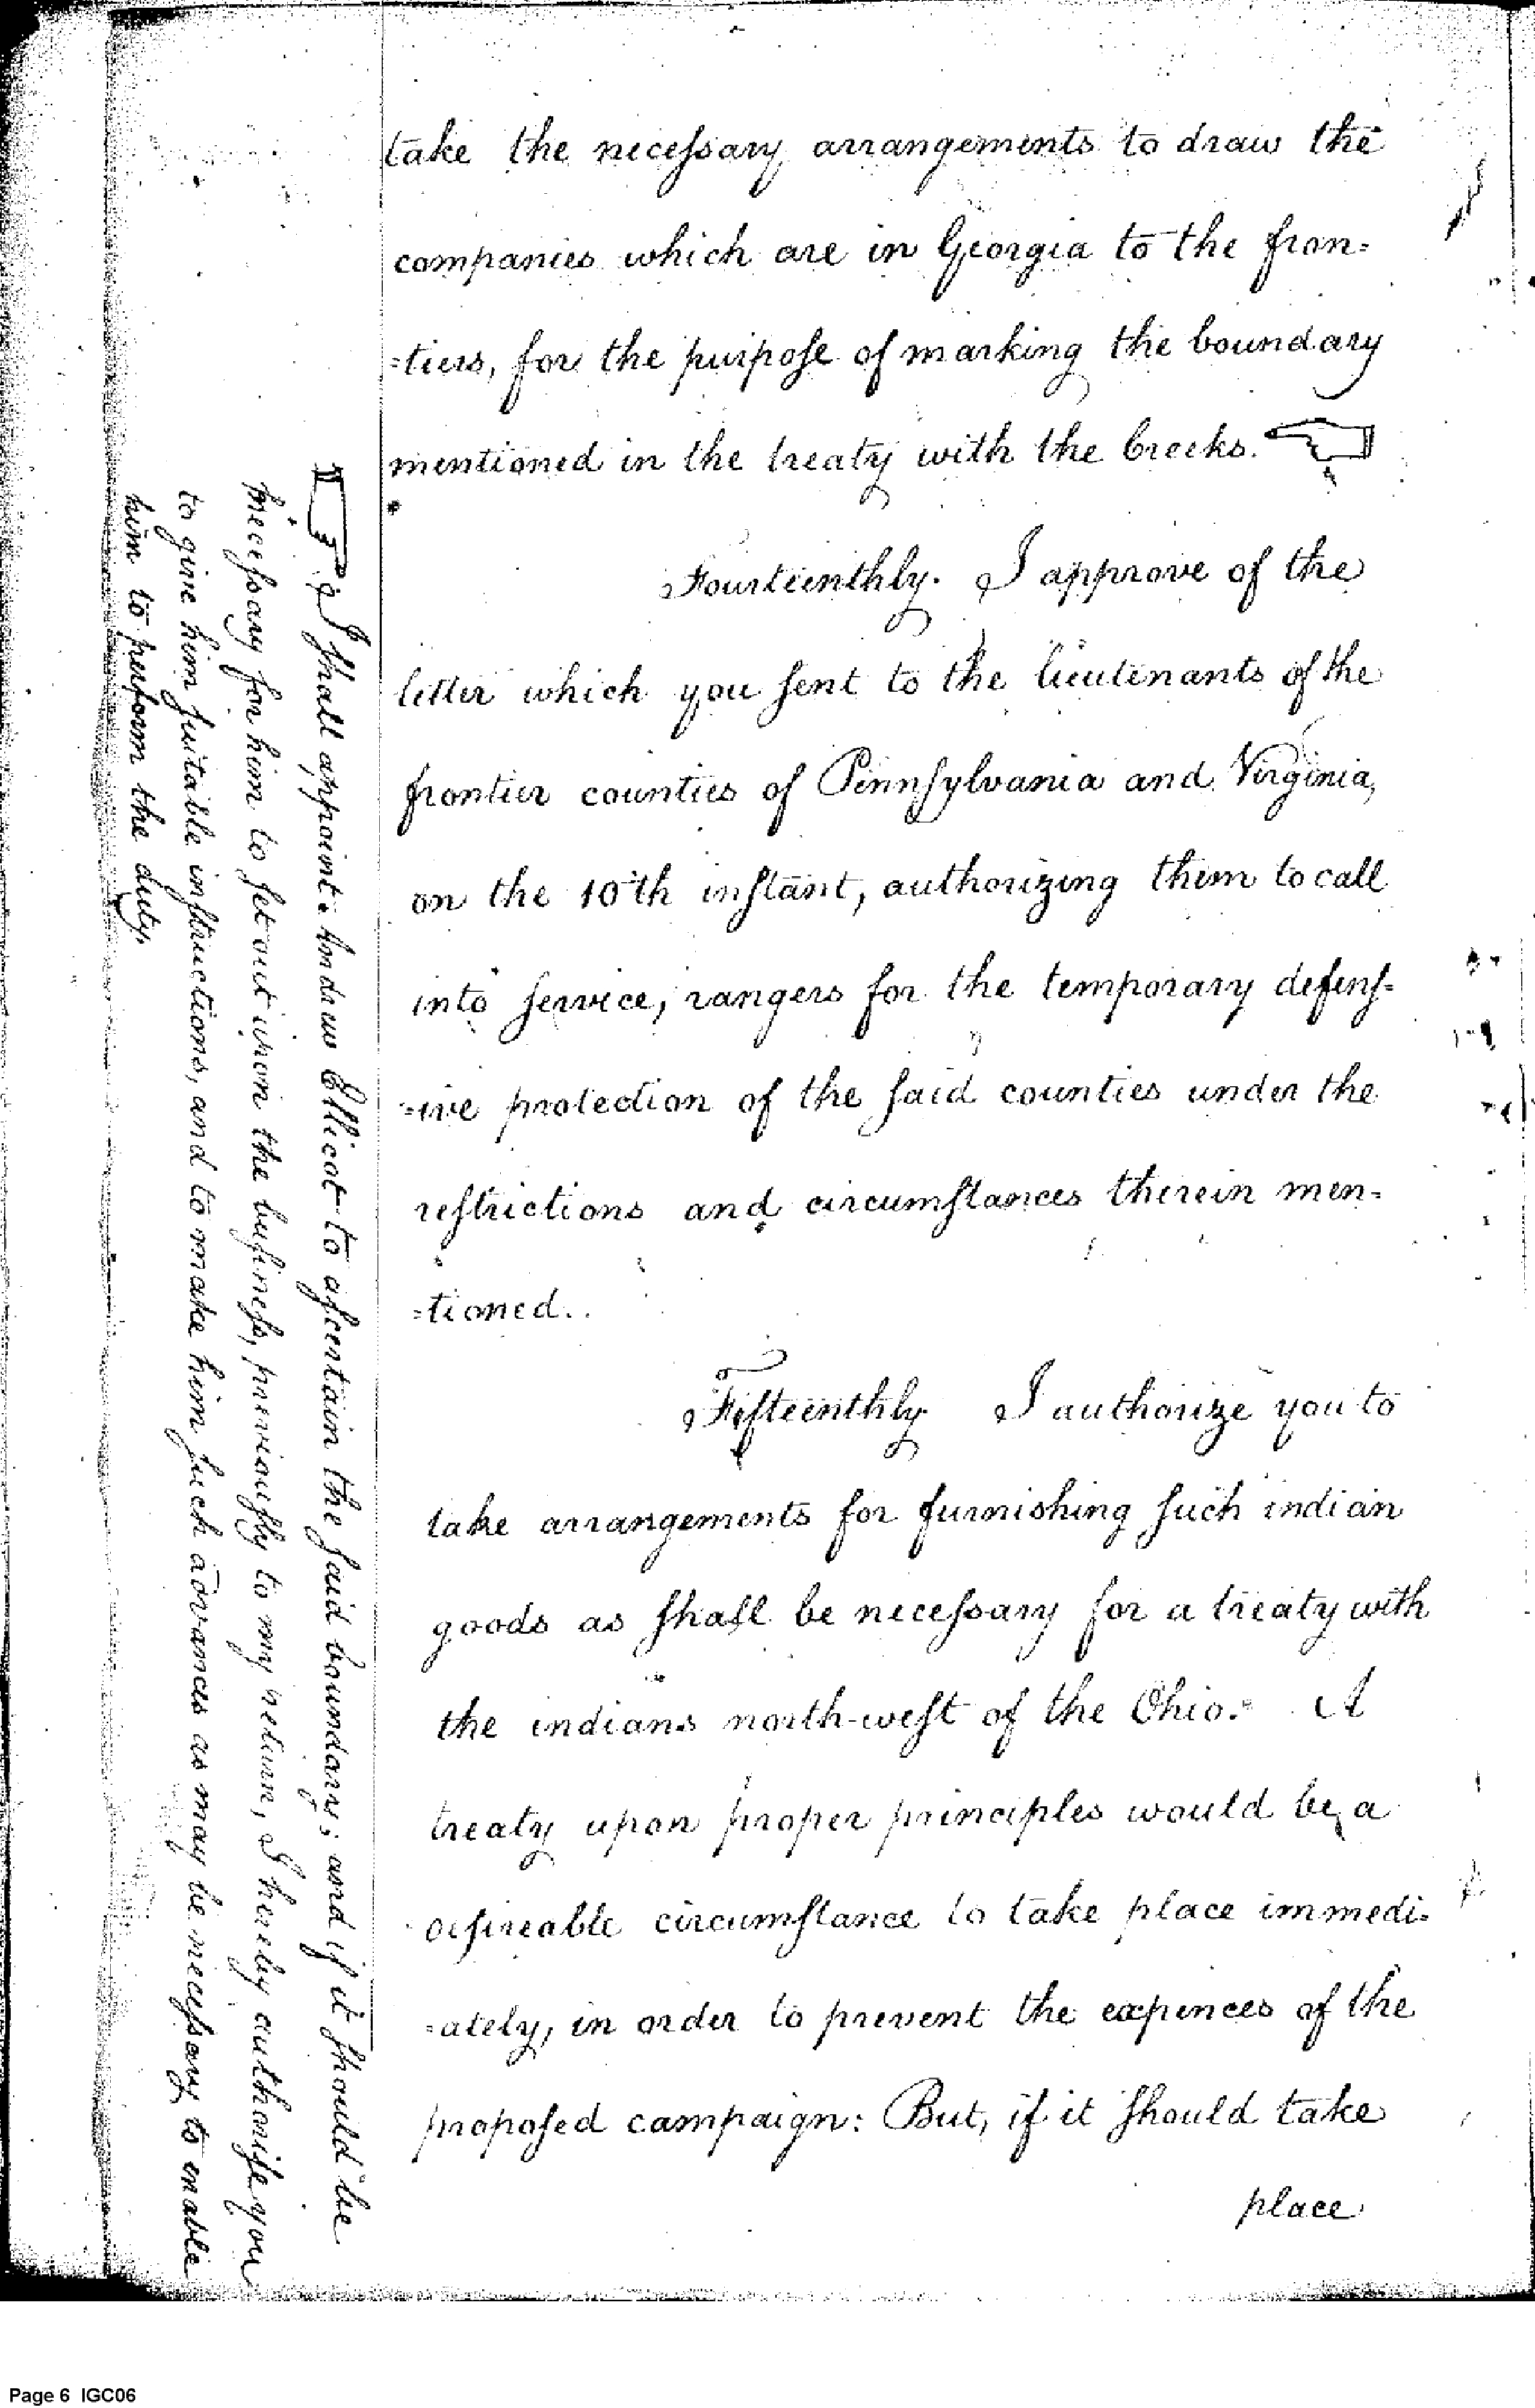 take the necessary arrangements to draw the
companies which are in Georgia to the fron=
=tiers, for the purpose of marking the boundary
mentioned in the treaty with the Creeks. ☞
Fourteenthly. I approve of the
letter which you sent to the lieutenants of the
frontier counties of Pennsylvania and Virginia,
on the 10th instant, authorizing them to call
into service, rangers for the temporary defens=
=ive protection of the said counties under the
restrictions and circumstances therein men=
=tioned.
Fifteenthly I authorize you to
take arrangements for furnishing such indian
goods as shall be necessary for a treaty with
the indians north-west of the Ohio. A
treaty upon proper principles would be a
desireable circumstance to take place immedi=
=ately, in order to prevent the expences of the
proposed campaign: But, if it should take
place
☞ I shall appoint Andrew Ellicot to ascertain the said boundary; and if it should be
necessary for him to set out upon the business, previously to my return, I hereby authorise you
to give him suitable instructions, and to make him such advances as may be necessary to enable
him to perform the duty.
Page 6 IGC06